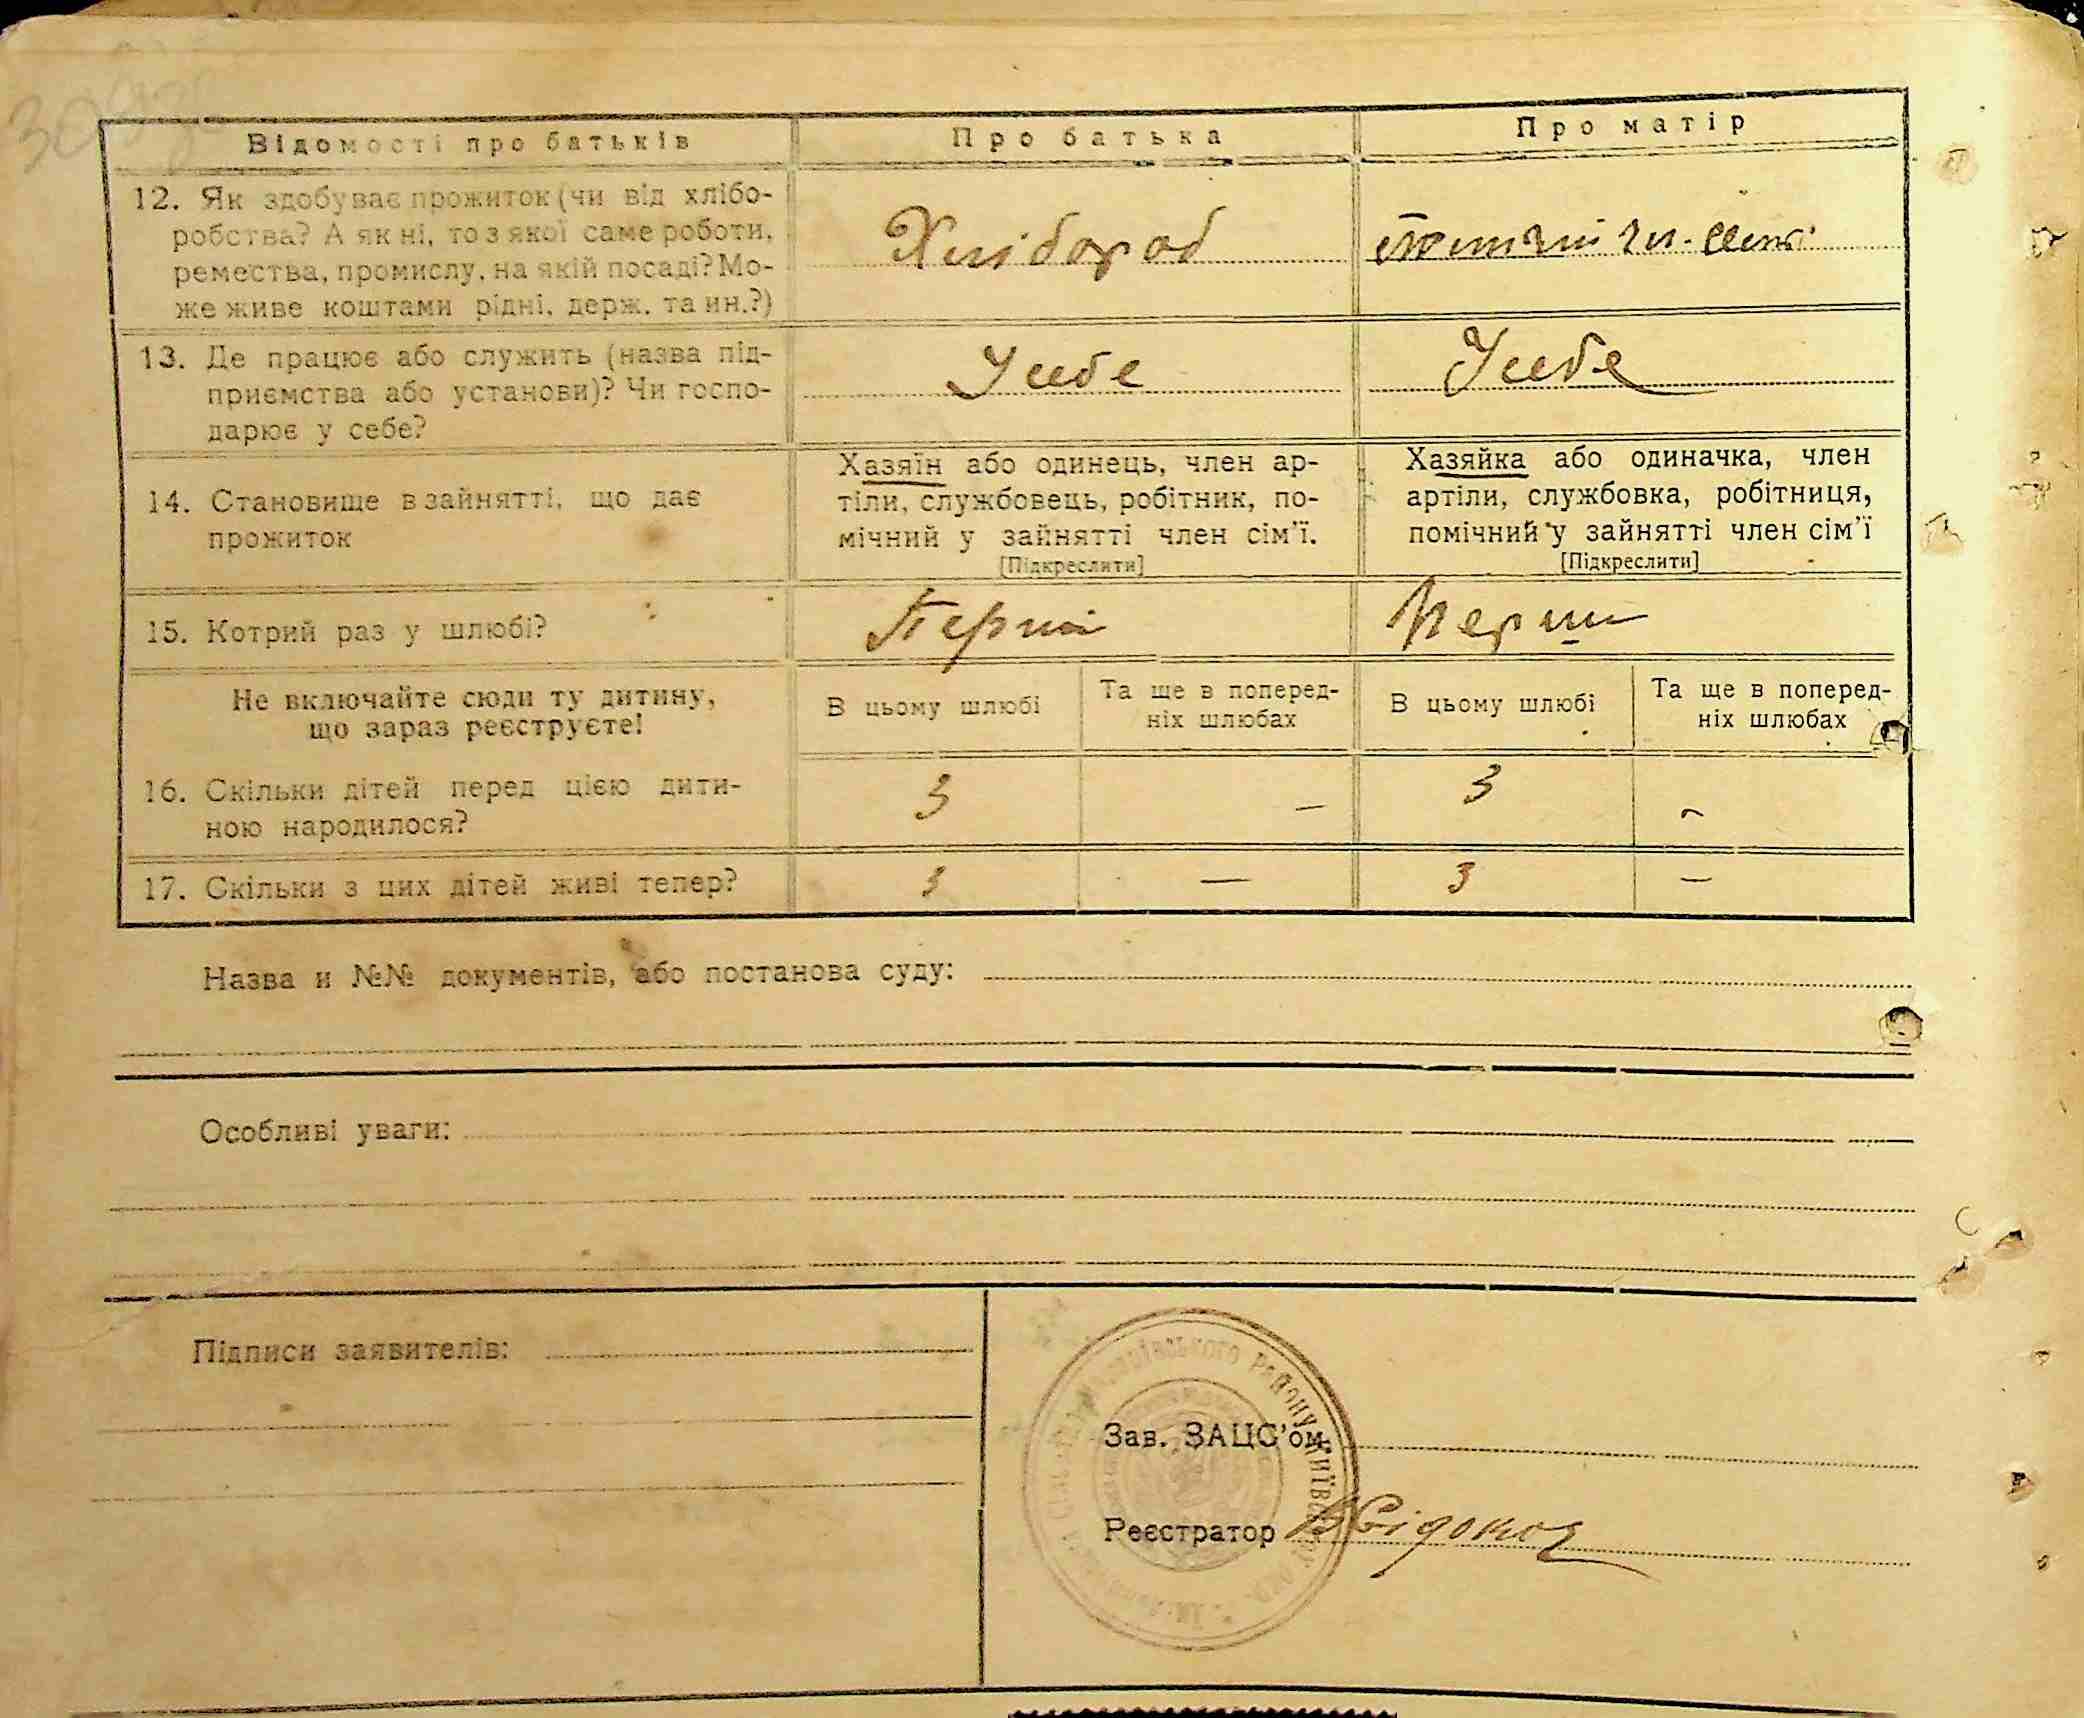 309зв
Відомості про батьків
Про батька
Про матір
12. Як здобуває прожиток (чи від хлібо-
робства? А як ні, то з якої саме роботи,
ремества, промислу, на якій посаді? Мо-
же живе коштами рідні, держ. та ин.?)
Хлібороб
13. Де працює або служить (назва під-
приємства або установи)? Чи госпо-
дарює у себе?
У себе
У себе
14. Становище в зайнятті, що дає
прожиток
Хазяїн або одинець, член ар-
тіли, службовець, робітник, по-
мічний у зайнятті член сім'ї.
[Підкреслити]
Хазяйка або одиначка, член
артіли, службовка, робітниця,
помічний у зайнятті член сім'ї
[Підкреслити]
15. Котрий раз у шлюбі?
Перший
Перший
Не включайте сюди ту дитину,
що зараз реєструєте!
В цьому шлюбі
Та ще в поперед-
ніх шлюбах
В цьому шлюбі
Та ще в поперед-
ніх шлюбах
16. Скільки дітей перед цією дити-
ною народилося?
3 – 3 –
17. Скільки з цих дітей живі тепер?
3 — 3 –
Назва и №№ документів, або постанова суду:
Особливі уваги:
Підписи заявителів:
району Київської окр.
Зав. ЗАЦС'ом
Реєстратор